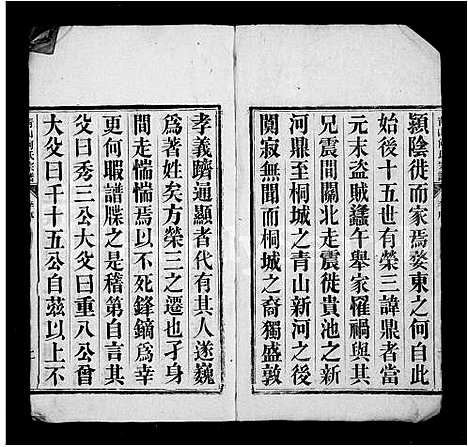 潁陰徙而家焉婺東之何自此
始後十五世有榮三諱鼎者當
元末盗賊蠭午舉家罹禍與其
兄震鬬北走震徙貴池之新
河鼎徙桐城之青山新河之後
闃寂無聞而桐城之裔獨盛敦
孝義躋通顯者代有其人遂巍
爲著姓矣方榮三之遷也孑身
間走惴惴焉以不死鋒鏑爲幸
更何暇譜牒之是稽第自言其
父曰秀三公大父曰重八公曾
大父曰千十五公自茲以上不